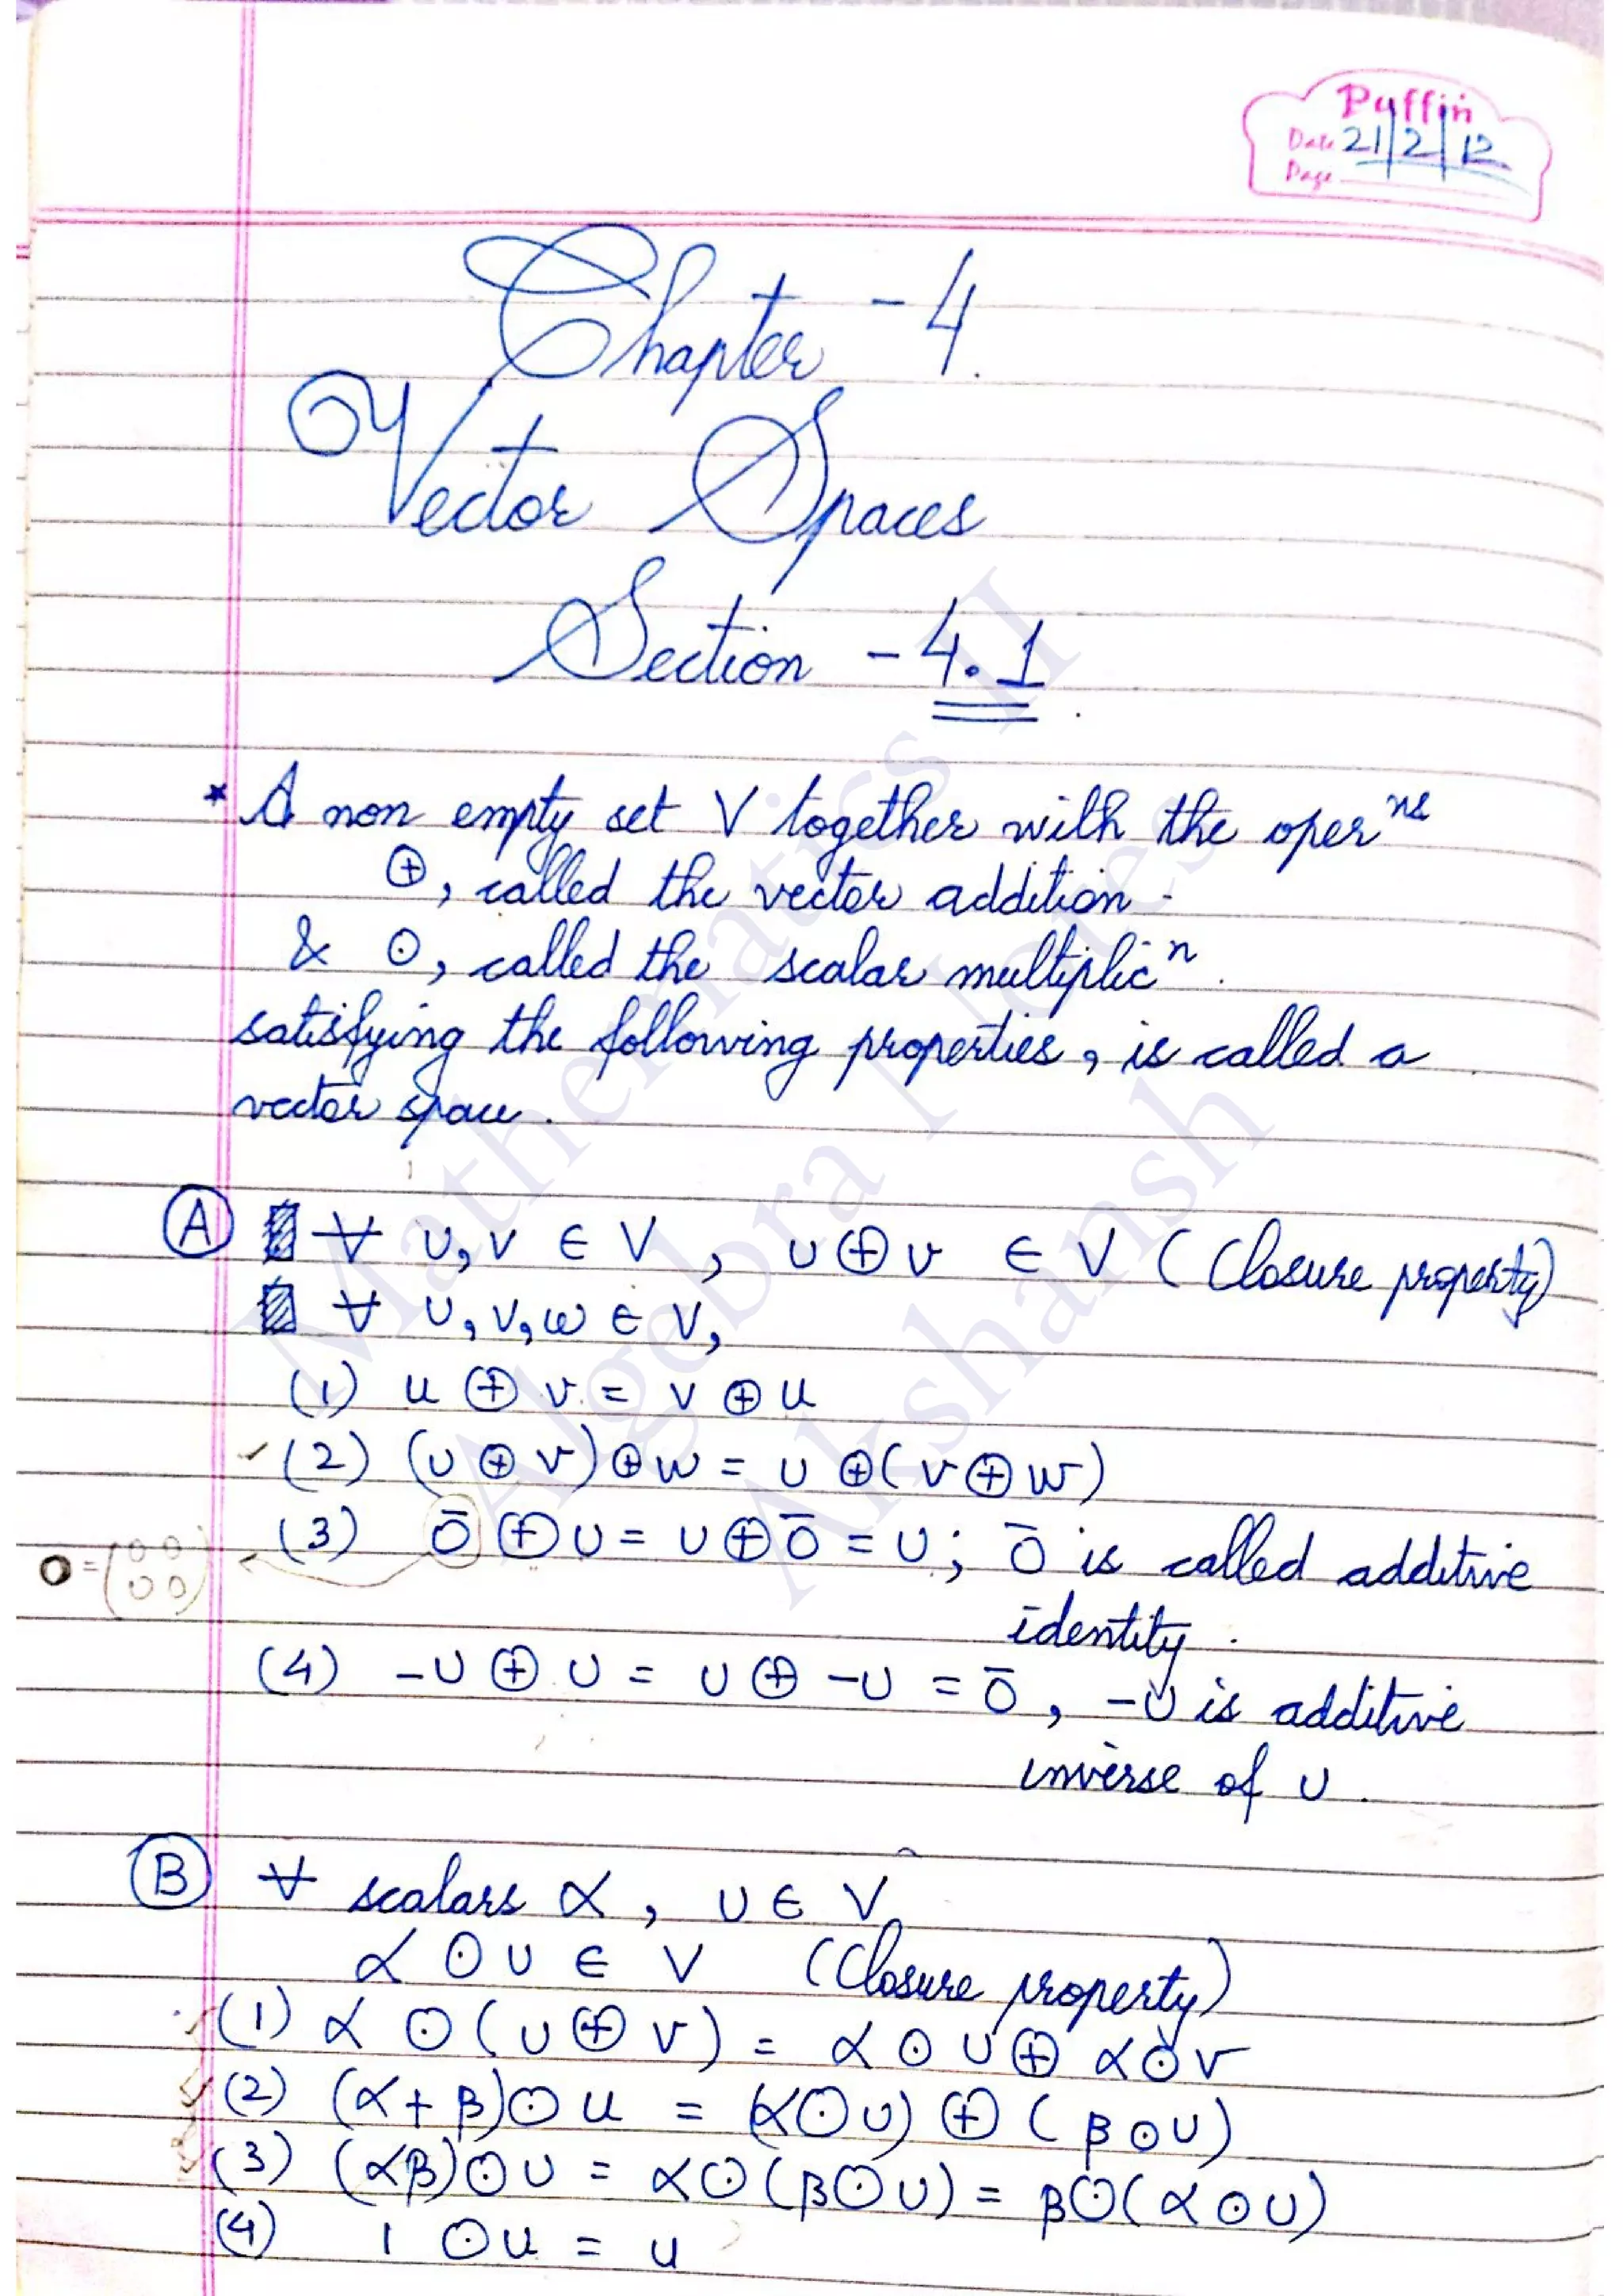 Puffin
Date 21/2/12
Page
Chapter - 4.
Vector Spaces
Section - 4.1
* A non empty set V together with the oper^ns
⊕, called the vector addition.
& ⊙, called the scalar multiplic^n.
satisfying the following properties, is called a
vector space.
(A) ∀ u, v ∈ V, u ⊕ v ∈ V (Closure property)
∀ u, v, w ∈ V,
(1) u ⊕ v = v ⊕ u
(2) (u ⊕ v) ⊕ w = u ⊕ (v ⊕ w)
(3) ō ⊕ u = u ⊕ ō = u; ō is called additive
identity.
0 = (0 0
0 0)
(4) -u ⊕ u = u ⊕ -u = ō, -u is additive
inverse of u.
(B) ∀ scalars α, u ∈ V
α ⊙ u ∈ V (Closure property)
(1) α ⊙ (u ⊕ v) = α ⊙ u ⊕ α ⊙ v
(2) (α + β) ⊙ u = (α ⊙ u) ⊕ (β ⊙ u)
(3) (αβ) ⊙ u = α ⊙ (β ⊙ u) = β ⊙ (α ⊙ u)
(4) 1 ⊙ u = u
Mathematics II
Algebra Notes
Akshansh